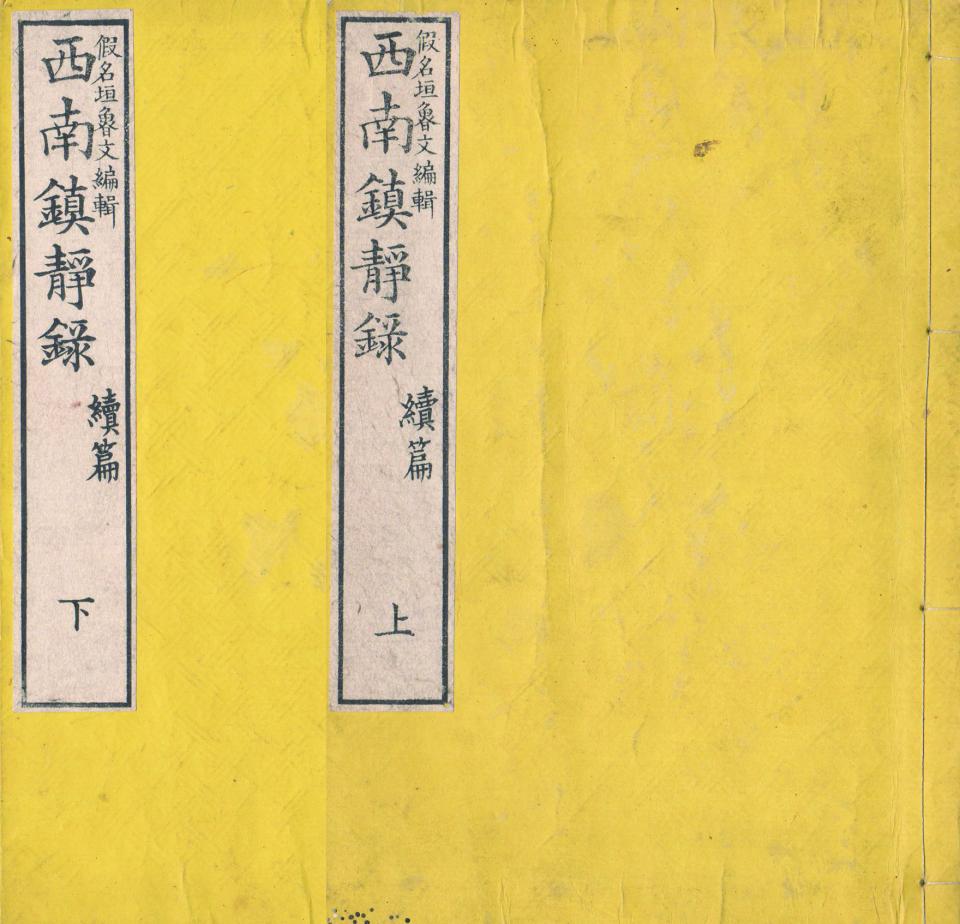 假名垣魯文編輯
西南鎮靜錄
續篇
上
假名垣魯文編輯
西南鎮靜錄
續篇
下